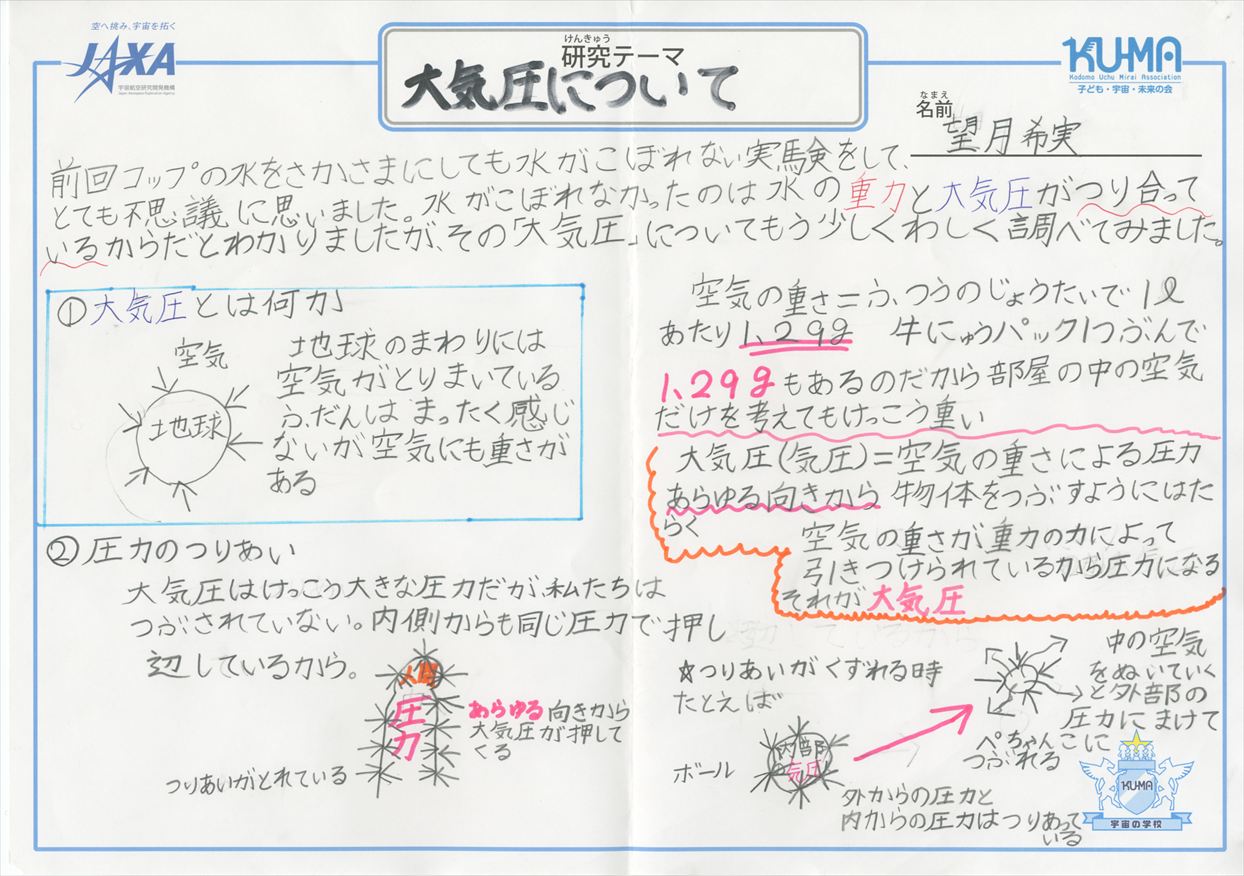 空へ挑み、宇宙を拓く
JAXA
宇宙航空研究開発機構
Japan Aerospace Exploration Agency
けんきゅう
研究テーマ
大気圧について
KUMA
Kodomo Uchu Mirai Association
子ども・宇宙・未来の会
なまえ
名前
望月希実
前回コップの水をさかさまにしても水がこぼれない実験をして、
とても不思議に思いました。水がこぼれなかったのは水の重力と大気圧がつり合って
いるからだとわかりましたが、その「大気圧」についてもう少しくわしく調べてみました。
①大気圧とは何か
空気
地球
地球のまわりには
空気がとりまいている
ふだんはまったく感じ
ないが空気にも重さが
ある
空気の重さ=ふつうのじょうたいで1ℓ
あたり1、29g 牛にゅうパック1つぶんで
1、29gもあるのだから部屋の中の空気
だけを考えてもけっこう重い
大気圧(気圧)=空気の重さによる圧力
あらゆる向きから物体をつぶすようにはた
らく
空気の重さが重力の力によって
引きつけられているから圧力になる
それが大気圧
②圧力のつりあい
大気圧はけっこう大きな圧力だが、私たちは
つぶされていない。内側からも同じ圧力で押し
辺しているから。
人間
圧力
あらゆる向きから
大気圧が押して
くる
つりあいがとれている
☆つりあいがくずれる時
たとえば
ボール
内部
気圧
外からの圧力と
内からの圧力はつりあって
いる
中の空気
をぬいていく
と外部の
圧力にまけて
ぺちゃんこに
つぶれる
KUMA
宇宙の学校